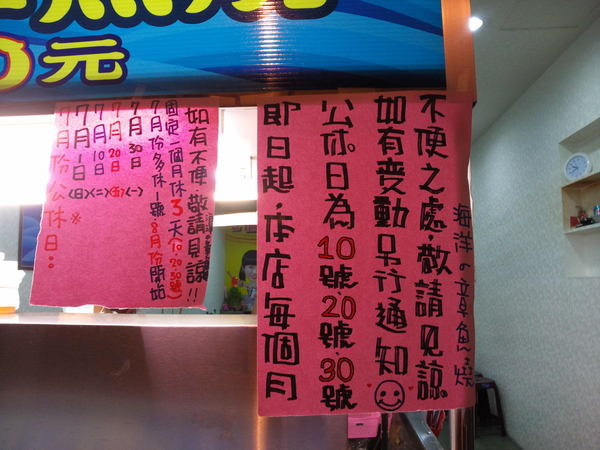 0元
7月份公休日：※
7月1日(日)
7月10日(二)
7月20日(五)
7月30日(一)
7月份多休1號.8月份開始
固定一個月休3天(10.20.30號)
如有不便敬請見諒!!
即日起·本店每個月
公休日為10號.20號.30號
如有変動另行通知
不便之處·敬請見諒
海洋の章魚燒